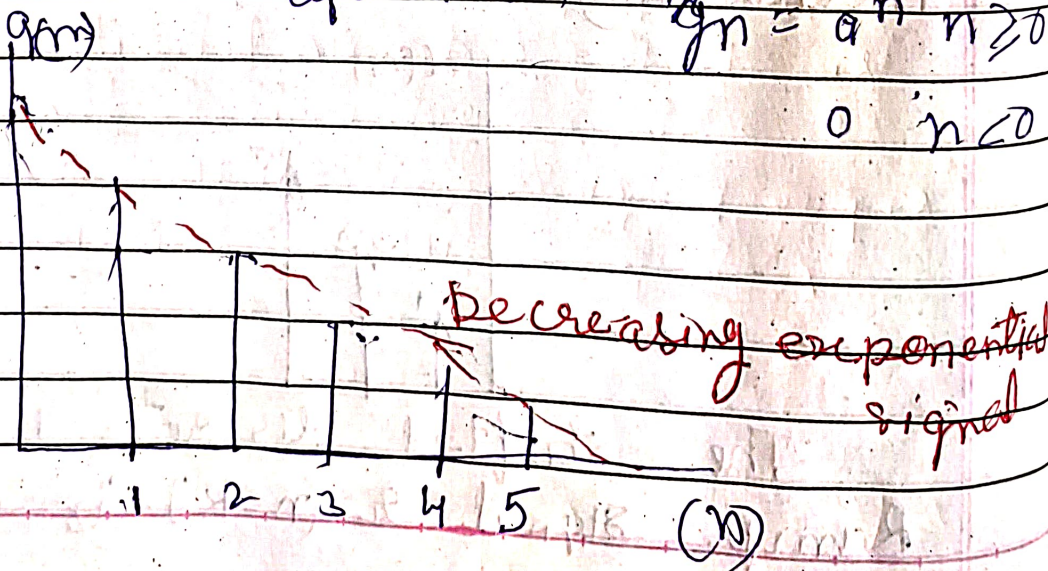 g(n)
gn = aⁿ n≥0
0 n<0
Decreasing exponential
signal
1 2 3 4 5 (n)